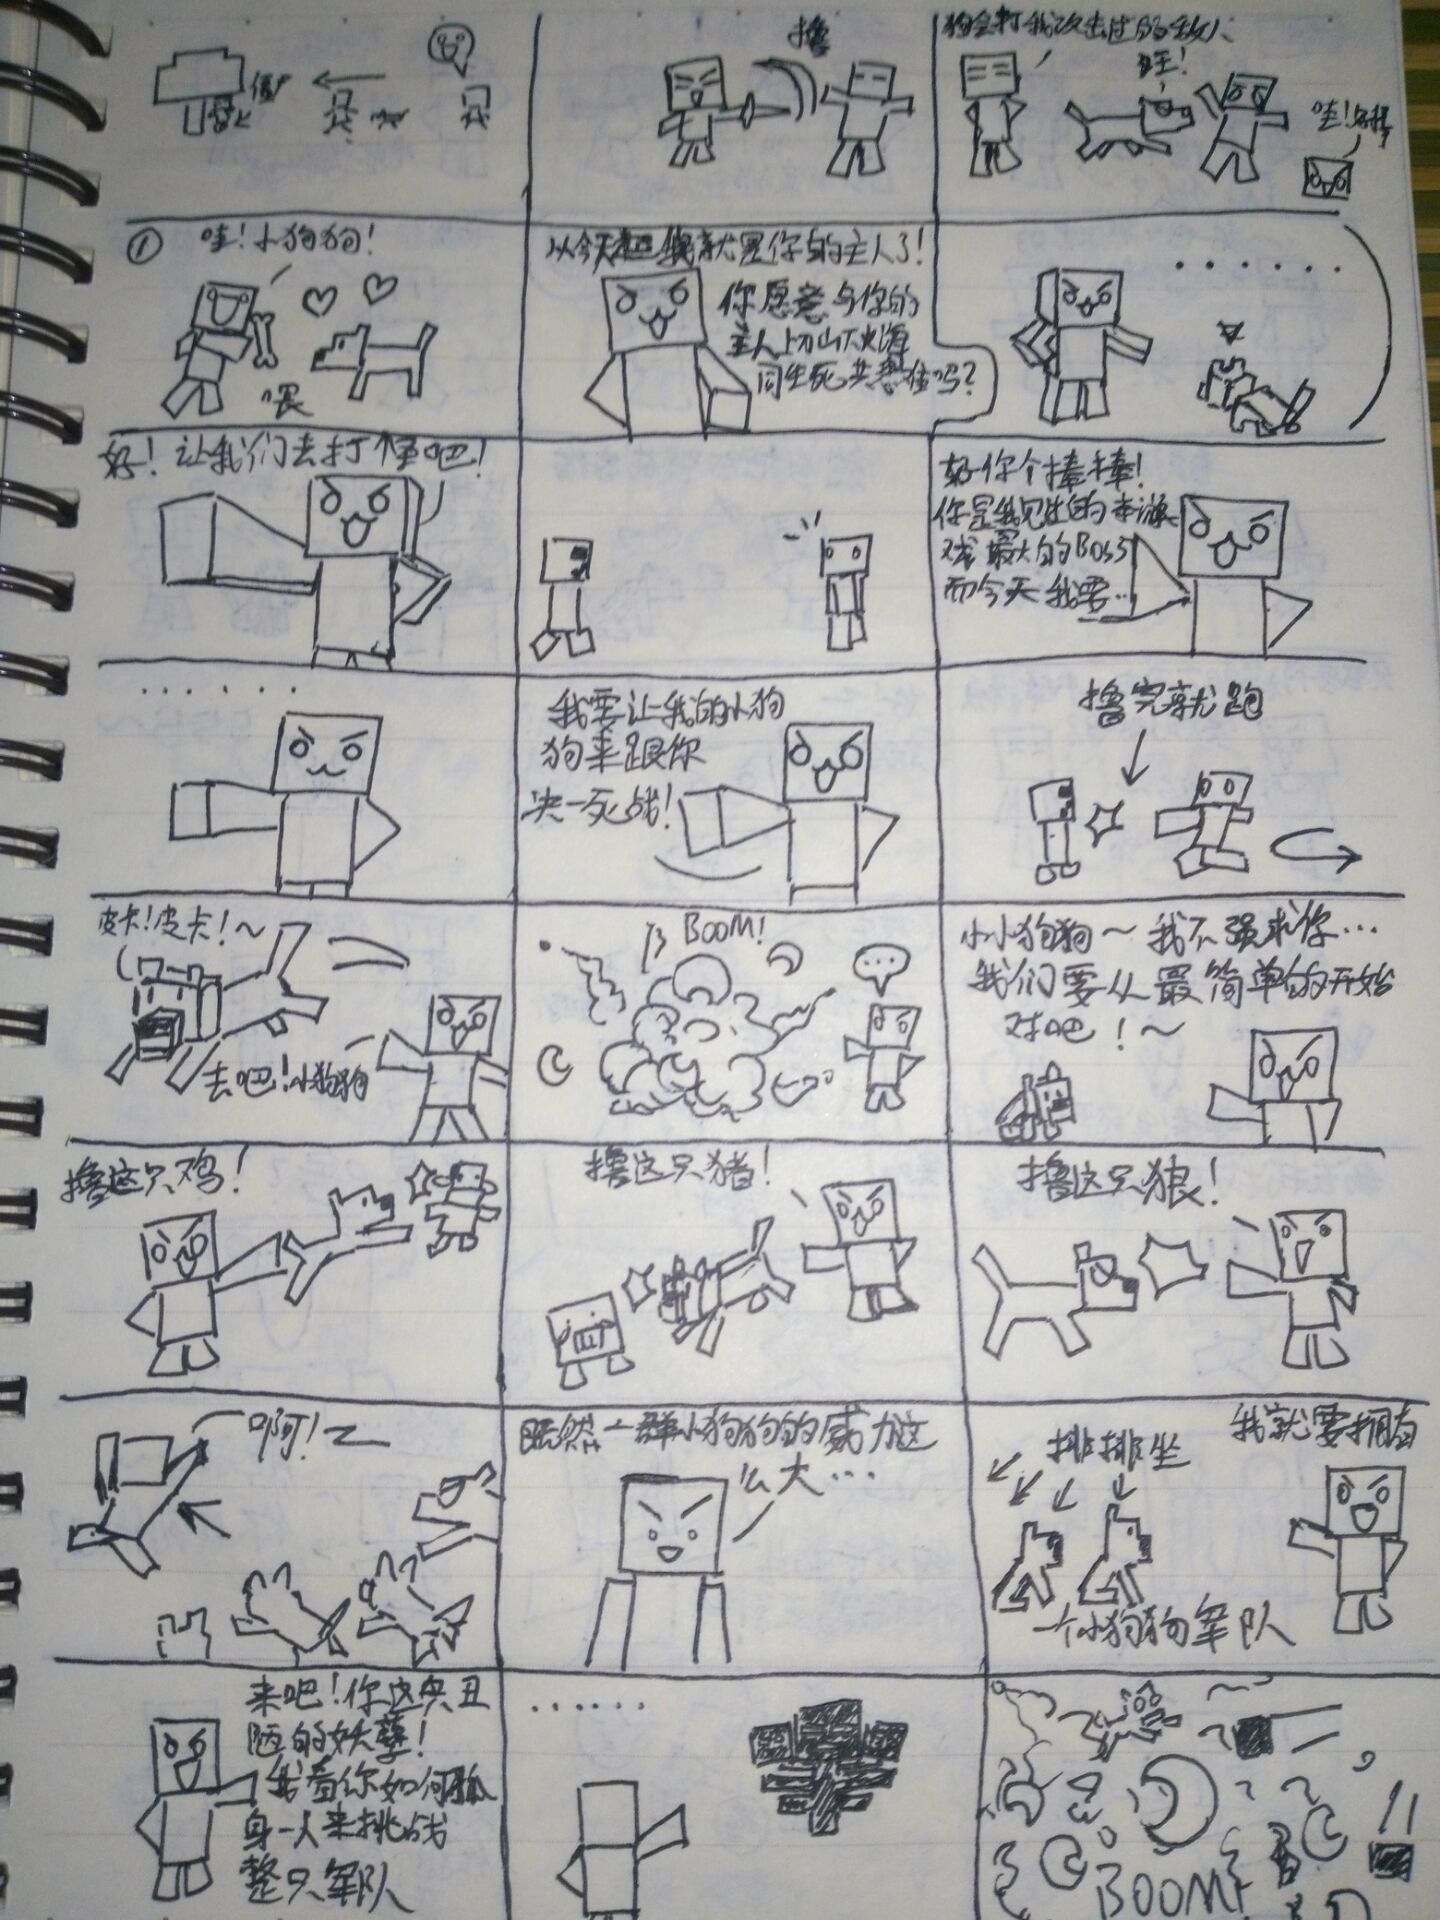 撸
狗会打我攻击过的敌人
旺!
哇!好棒
①
哇!小狗狗!
喂
从今天起我就是你的主人了!
你愿意与你的
主人上刀山下火海
同生死共患难吗?
......
好!让我们去打怪吧!
好你个棒棒!
你是我见过的本游
戏最大的BOSS
而今天我要...
......
我要让我的小狗
狗来跟你
决一死战!
撸完就跑
皮卡!皮卡!~
去吧!小狗狗
BOOM!
...
小小狗狗~我不强求你...
我们要从最简单的开始
对吧!~
撸这只鸡!
撸这只猪!
撸这只狼!
啊!~
既然一群小狗狗的威力这
么大...
我就要拥有
排排坐
一个小狗狗军队
来吧!你这央丑
陋的妖孽!
我看你如何孤
身一人来挑战
整只军队
......
BOOM!